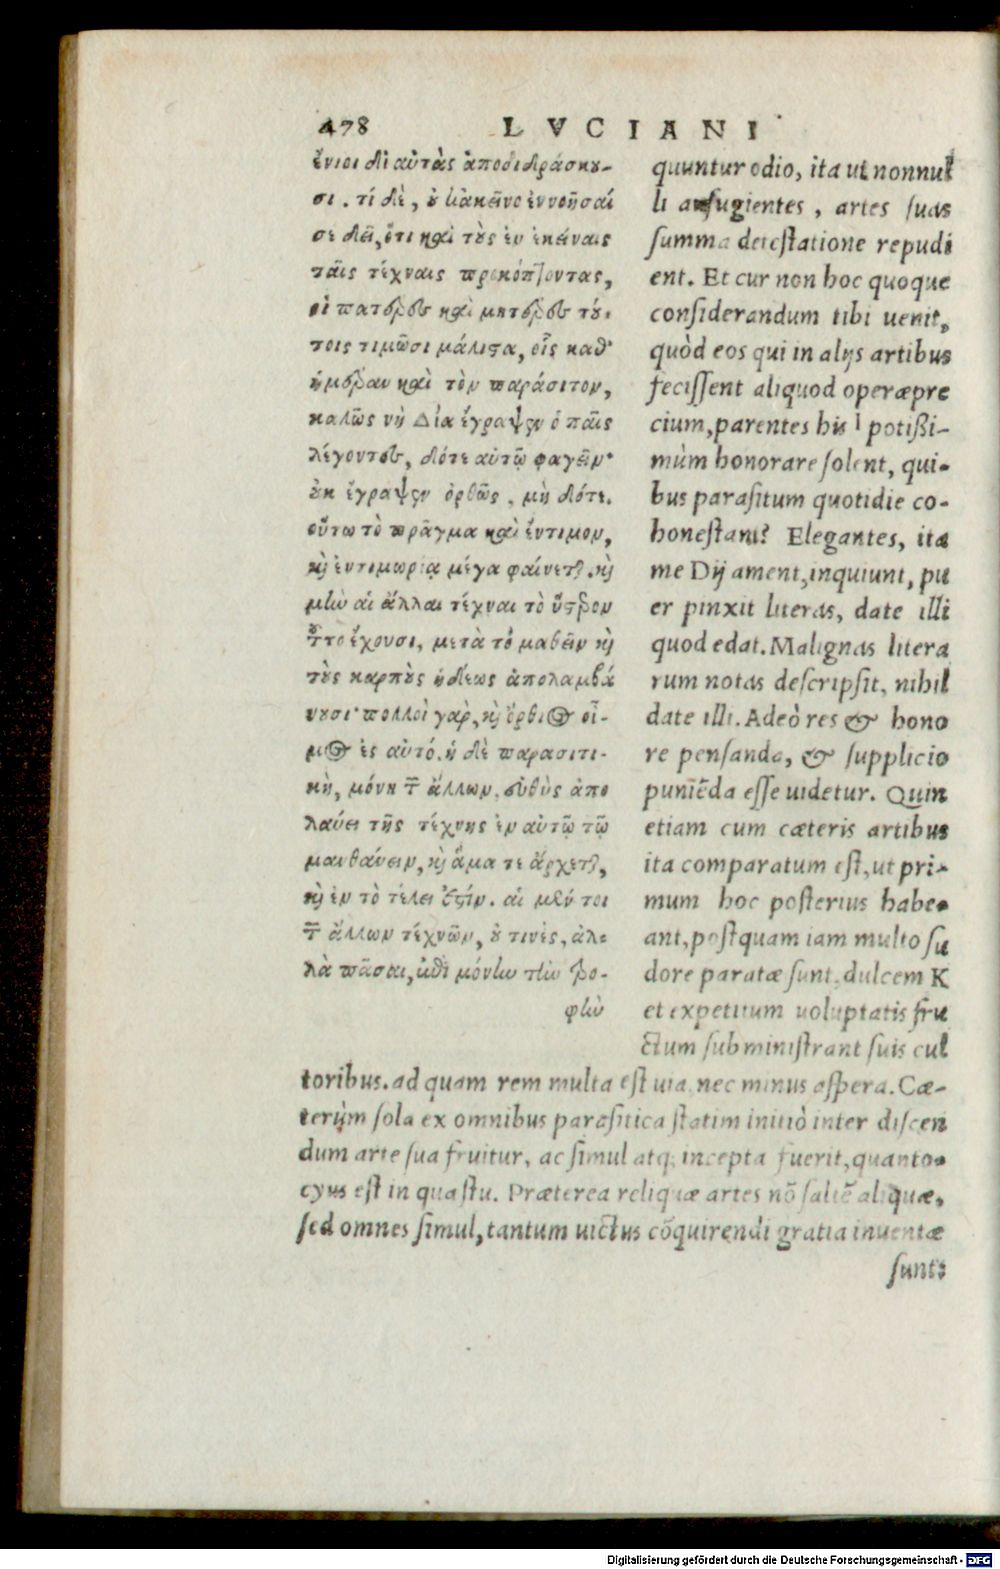 478 LVCIANI
ἔνιοι δὲ αὐτὰς ἀποδιδράσκου-
σι. τί δὲ, οὐ κἀκεῖνο ἐννοῆσαί
σε δεῖ, ὅτι καὶ τοὺς ἐν ἐκείναις
ταῖς τέχναις προκόπτοντας,
οἱ πατέρες καὶ μητέρες τού-
τοις τιμῶσι μάλιστα, οἷς καθ'
ἡμέραν καὶ τὸν παράσιτον,
καλῶς νὴ Δία ἔγραψεν ὁ παῖς
λέγοντες, δότε αὐτῷ φαγεῖν·
οὐκ ἔγραψεν ὀρθῶς, μὴ δότε.
οὕτω τὸ πρᾶγμα καὶ ἔντιμον,
καὶ ἐν τιμωρίᾳ μέγα φαίνεται. καὶ
μὴν αἱ ἄλλαι τέχναι τὸ ὕστερον
τοῦτο ἔχουσι, μετὰ τὸ μαθεῖν καὶ
τοὺς καρποὺς ἡδέως ἀπολαμβά
νουσι· πολλοὶ γὰρ, καὶ ὄρθιος οἶ-
μος ἐς αὐτό. ἡ δὲ παρασιτι-
κὴ, μόνη τῶν ἄλλων, εὐθὺς ἀπο
λαύει τῆς τέχνης ἐν αὐτῷ τῷ
μανθάνειν, καὶ ἅμα τε ἄρχεται,
καὶ ἐν τὸ τέλει ἐστίν. αἱ μέν τοι
τῶν ἄλλων τέχνῶν, οὐ τινὲς, ἀλ-
λὰ πᾶσαι, ἐπὶ μόνην τὴν τρο-
φὴν
quuntur odio, ita ut nonnul
li aufugientes, artes suas
summa detestatione repudi
ent. Et cur non hoc quoque
considerandum tibi uenit,
quòd eos qui in alijs artibus
fecissent aliquod operæpre
cium, parentes his potißi-
mùm honorare solent, qui-
bus parasitum quotidie co-
honestant? Elegantes, ita
me Dij ament, inquiunt, pu
er pinxit literas, date illi
quod edat. Malignas litera
rum notas descripsit, nihil
date illi. Adeò res & hono
re pensanda, & supplicio
puniẽda esse uidetur. Quin
etiam cum cæteris artibus
ita comparatum est, ut pri-
mum hoc posterius habe-
ant, postquam iam multo su
dore paratæ sunt, dulcem
et expetitum uoluptatis fru
ctum subministrant suis cul
toribus. ad quam rem multa est uia, nec minus aspera. Cæ-
terùm sola ex omnibus parasitica statim initiò inter discen
dum arte sua fruitur, ac simul atq; incepta fuerit, quanto-
cyus est in quæstu. Præterea reliquæ artes nõ saltẽ aliquæ,
sed omnes simul, tantum uictus cõquirendi gratia inuentæ
sunt:
Digitalisierung gefördert durch die Deutsche Forschungsgemeinschaft - DFG